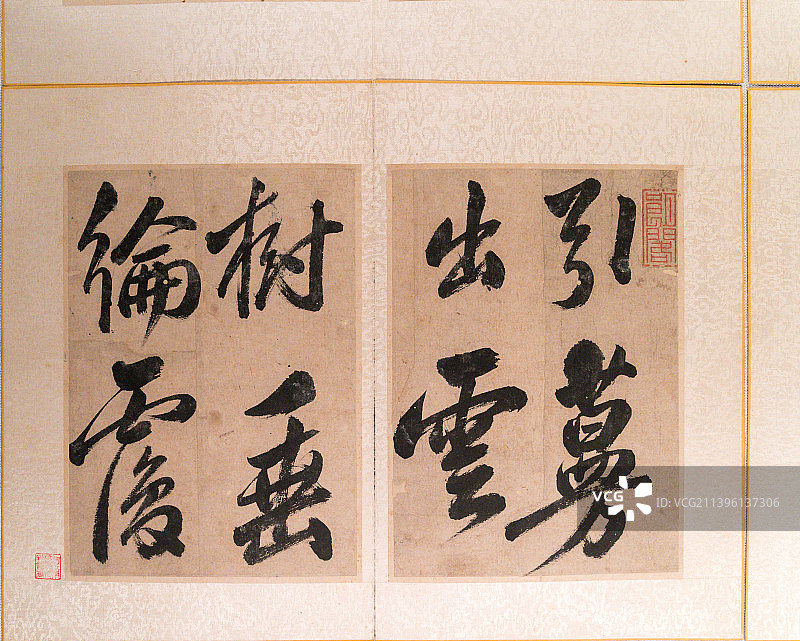 引蔓
出雲
樹垂
綸覆
VCG
ID: VCG211396137306